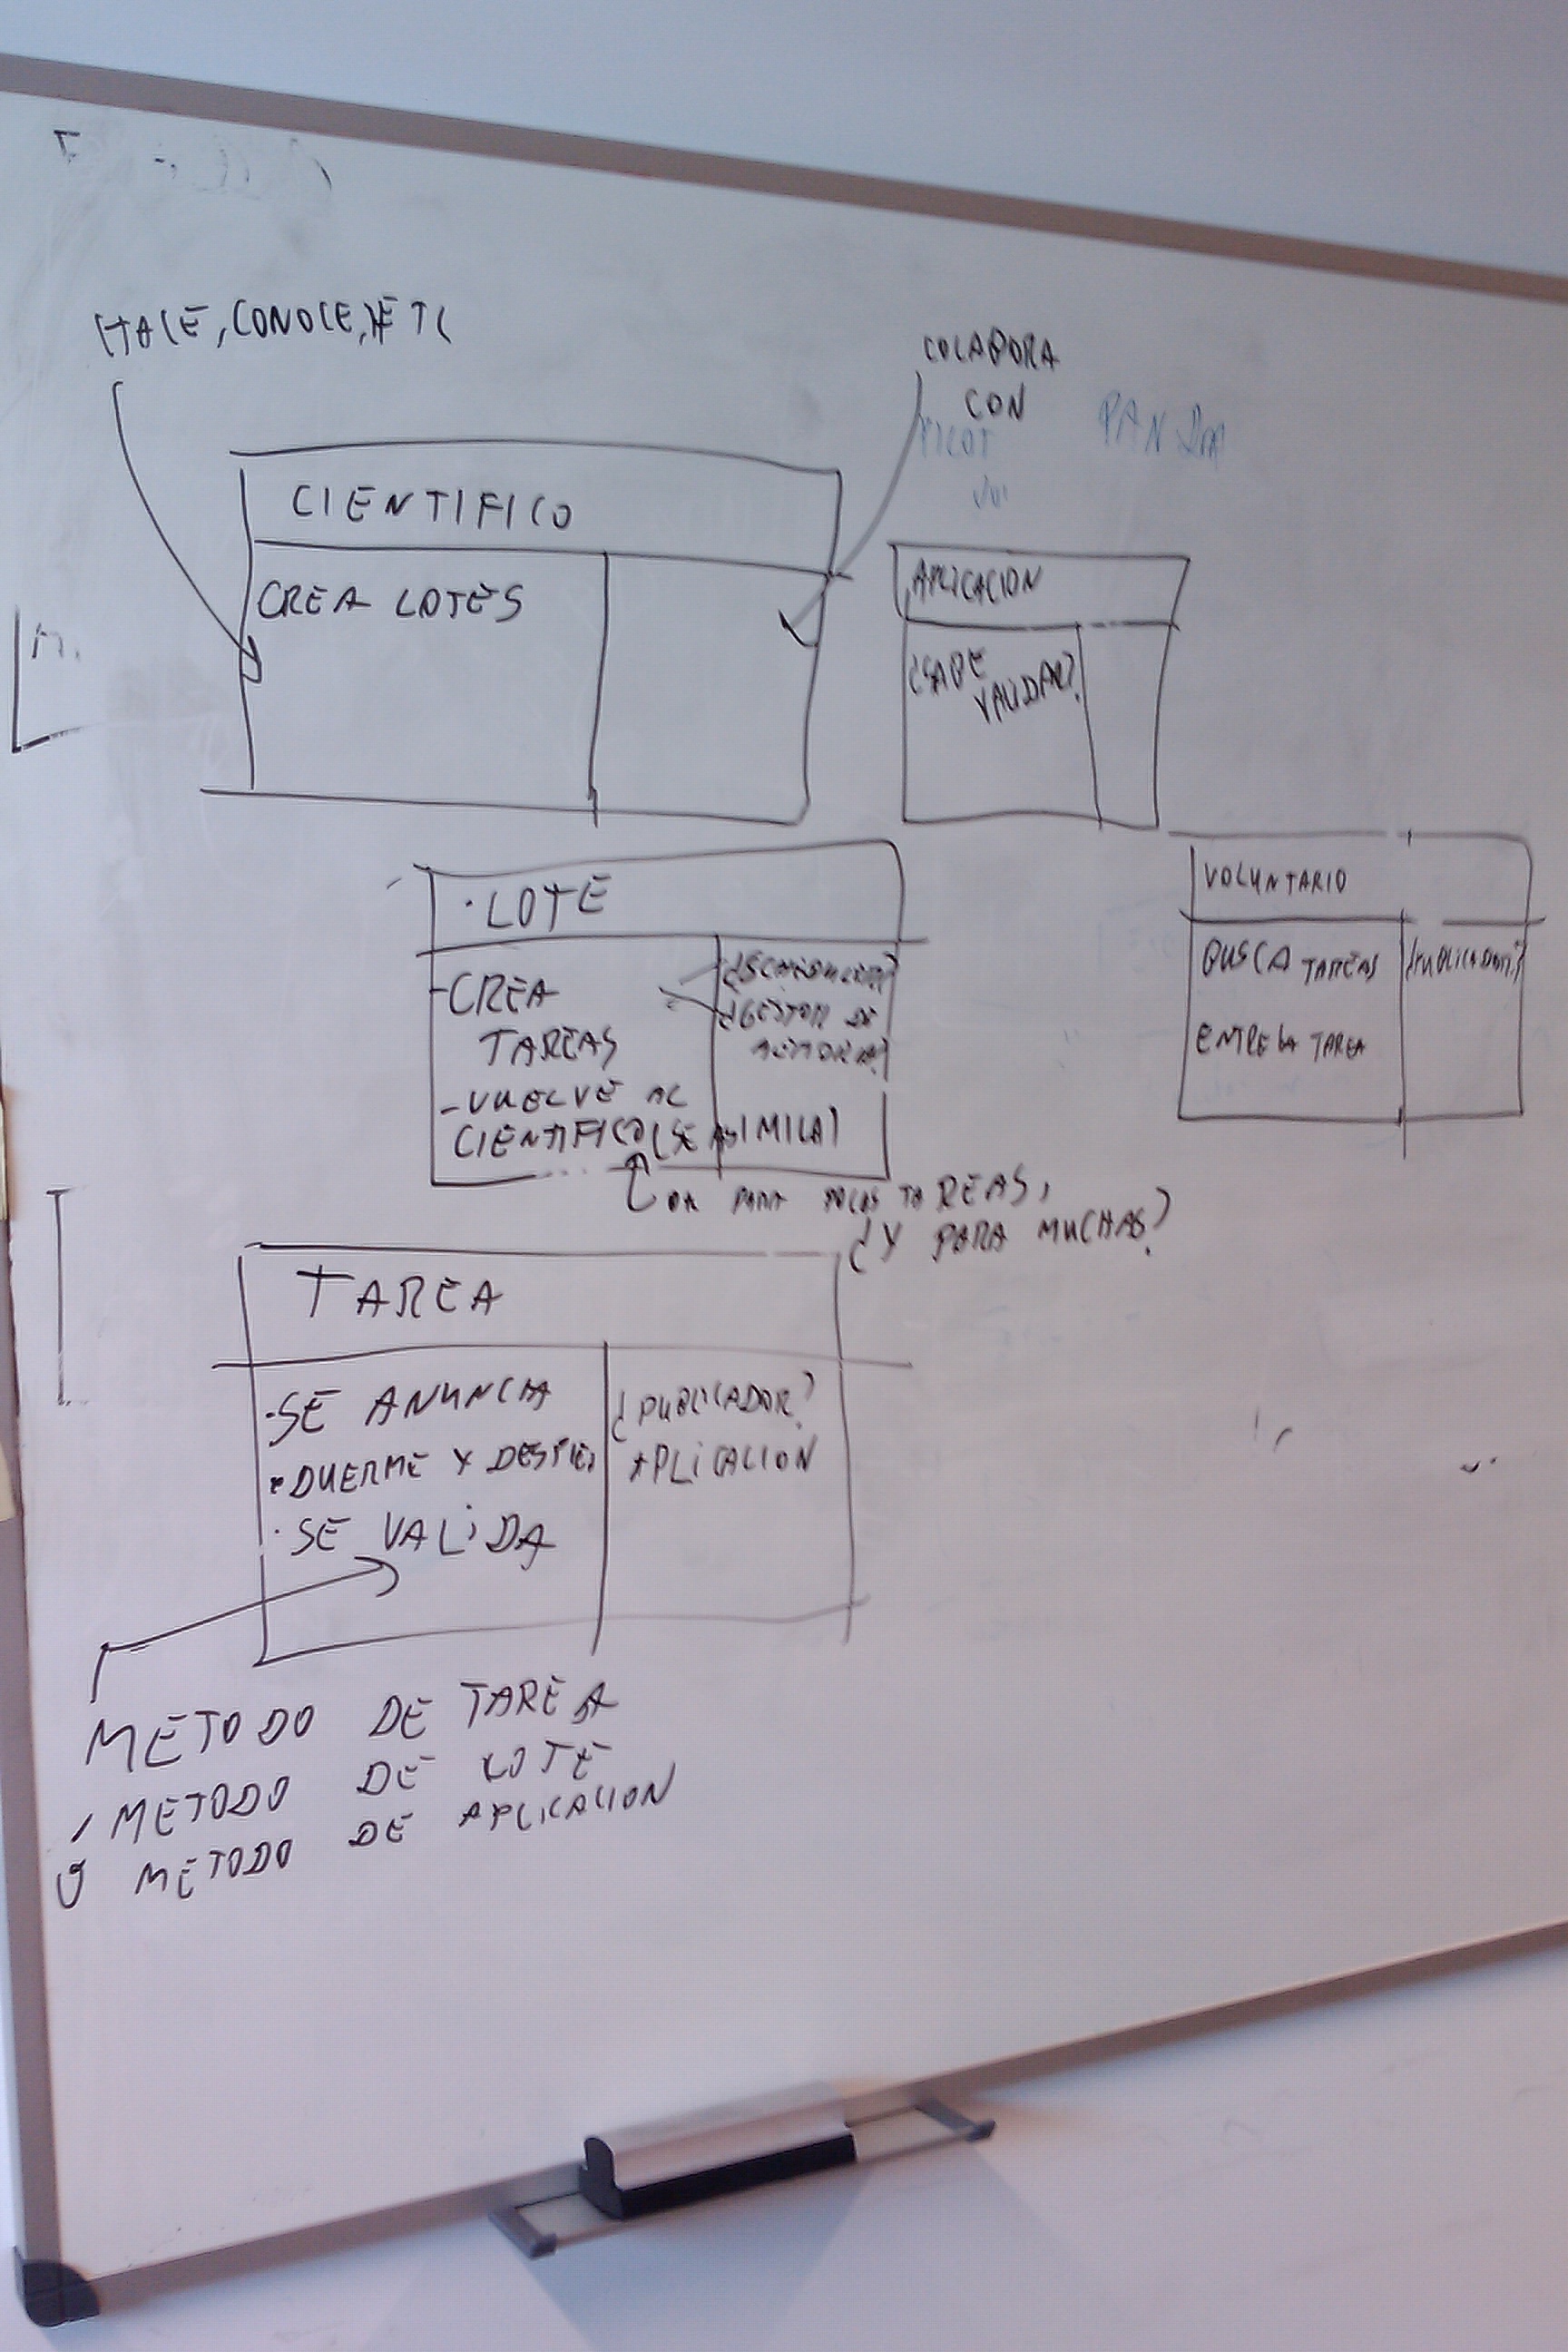 HACE, CONOCE, ETC
COLABORA
CON
PANDA
CIENTIFICO
CREA LOTES
APLICACION
¿SABE
VALIDAR?
LOTE
-CREA
TAREAS
-VUELVE AL
CIENTIFICO (SE ASIMILA)
¿SCHEDULER?
¿GESTOR DE
MEMORIA?
OK PARA POCAS TAREAS,
¿Y PARA MUCHAS?
VOLUNTARIO
BUSCA TAREAS
ENTREGA TAREA
¿PUBLICADOR?
TAREA
·SE ANUNCIA
·DUERME Y DESPIER
·SE VALIDA
¿PUBLICADOR?
APLICACION
METODO DE TAREA
METODO DE LOTE
Ó METODO DE APLICACION